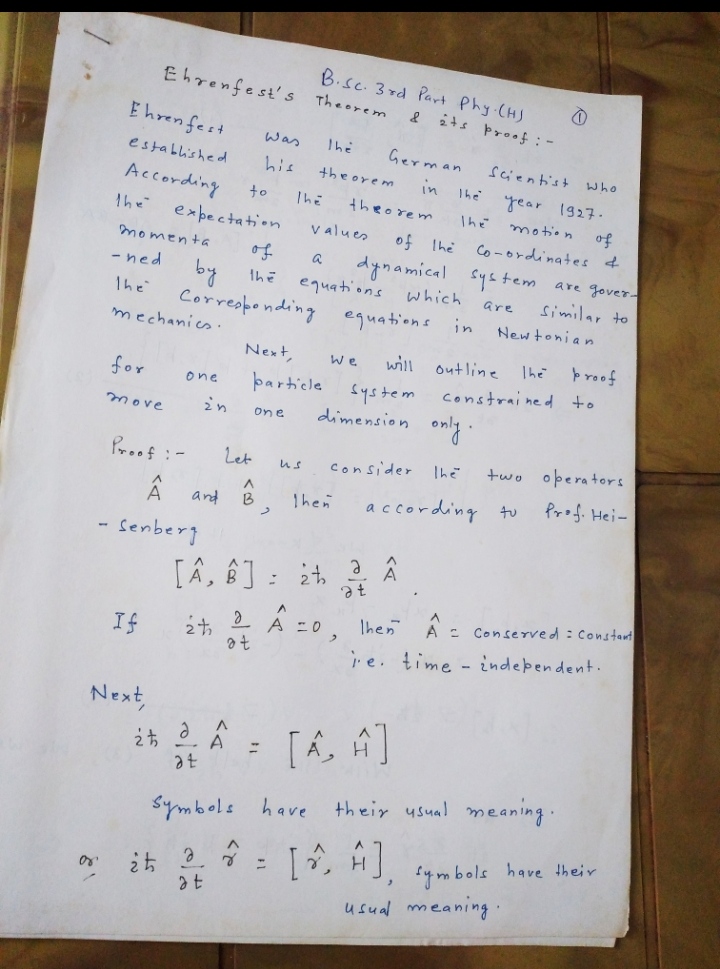 B.Sc. 3rd Part Phy.(H) ①
Ehrenfest's Theorem & its proof :-
Ehrenfest was the German scientist who
established his theorem in the year 1927.
According to the theorem the motion of
the expectation values of the co-ordinates &
momenta of a dynamical system are gover-
-ned by the equations which are similar to
the corresponding equations in Newtonian
mechanics.
Next, we will outline the proof
for one particle system constrained to
move in one dimension only.
Proof :- Let us consider the two operators
Â and B̂, then according to Prof. Hei-
- senberg
[Â, B̂] = iħ ∂/∂t Â.
If iħ ∂/∂t Â = 0, then Â = conserved = constant
i.e. time - independent.
Next,
iħ ∂/∂t Â = [Â, Ĥ]
Symbols have their usual meaning.
or, iħ ∂/∂t r̂ = [r̂, Ĥ], symbols have their
usual meaning.